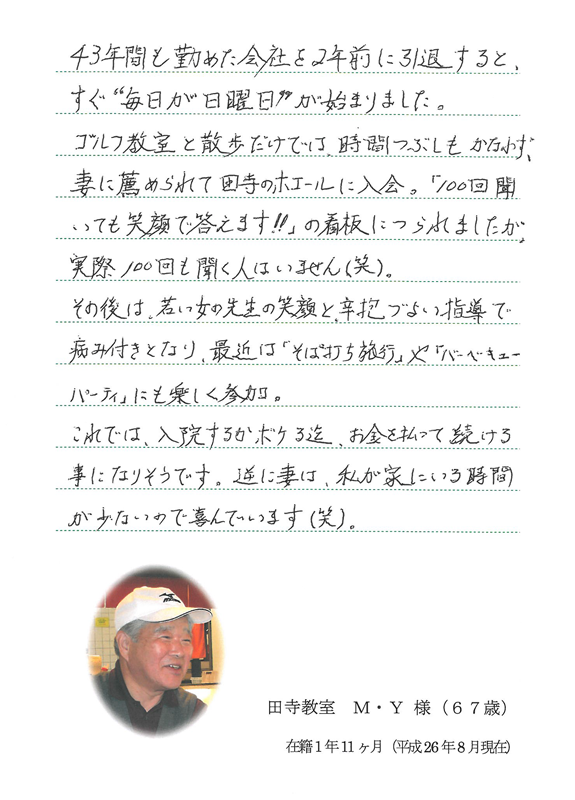 43年間も勤めた会社を2年前に引退すると、
すぐ“毎日が日曜日”が始まりました。
ゴルフ教室と散歩だけでは、時間つぶしもかなわず、
妻に薦められて田寺のホエールに入会。「100回聞
いても笑顔で答えます!!」の看板につられましたが、
実際100回も聞く人はいません(笑)。
その後は、若い女の先生の笑顔と、辛抱づよい指導で
病み付きとなり、最近は「そば打ち旅行」や「バーベキュー
パーティ」にも楽しく参加。
これでは、入院するかボケる迄、お金を払って続ける
事になりそうです。逆に妻は、私が家にいる時間
が少ないので喜んでいます(笑)。
田寺教室 M・Y 様（67歳）
在籍1年11ヶ月（平成26年8月現在）